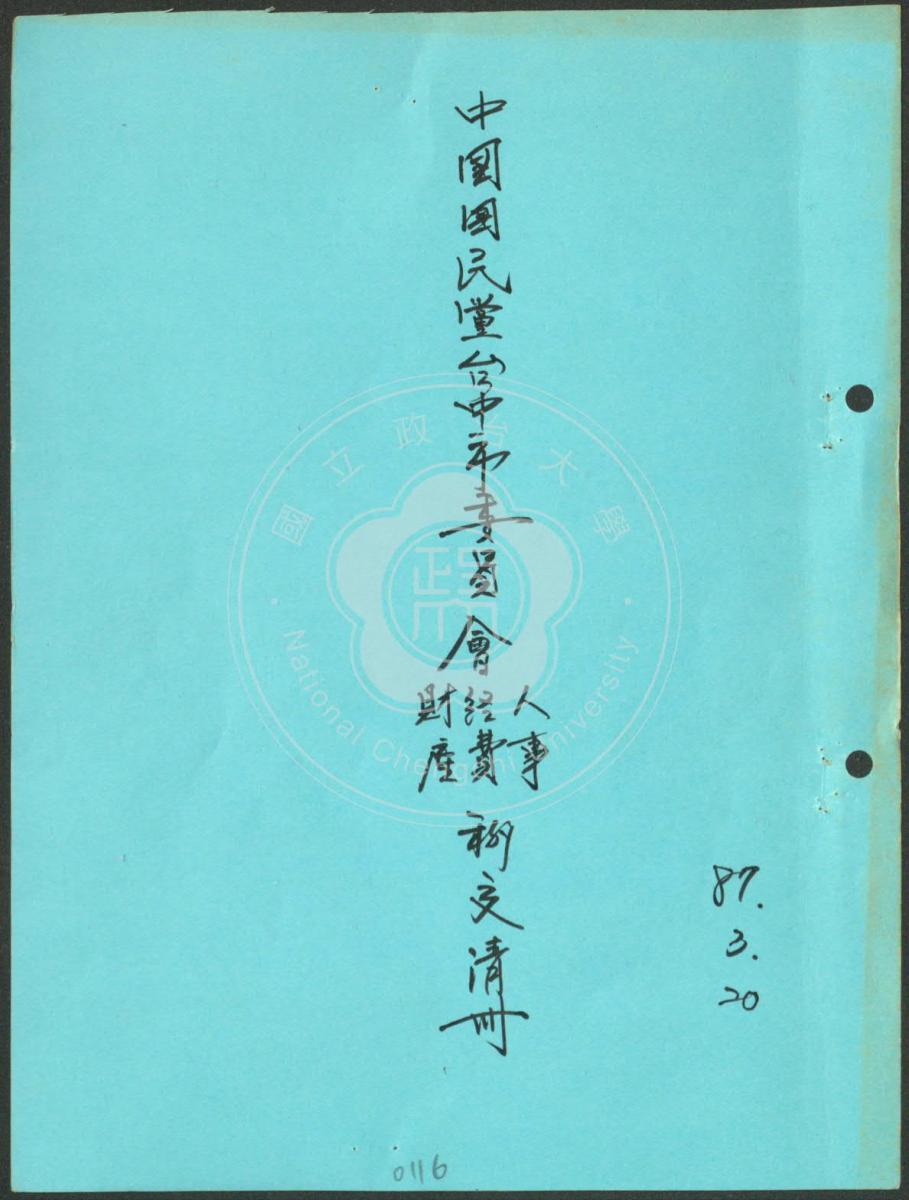 87.3.20
中国国民黨台中市委員會
人事
經費
財產
移交清冊
0116
國立政治大學
National Chengchi University